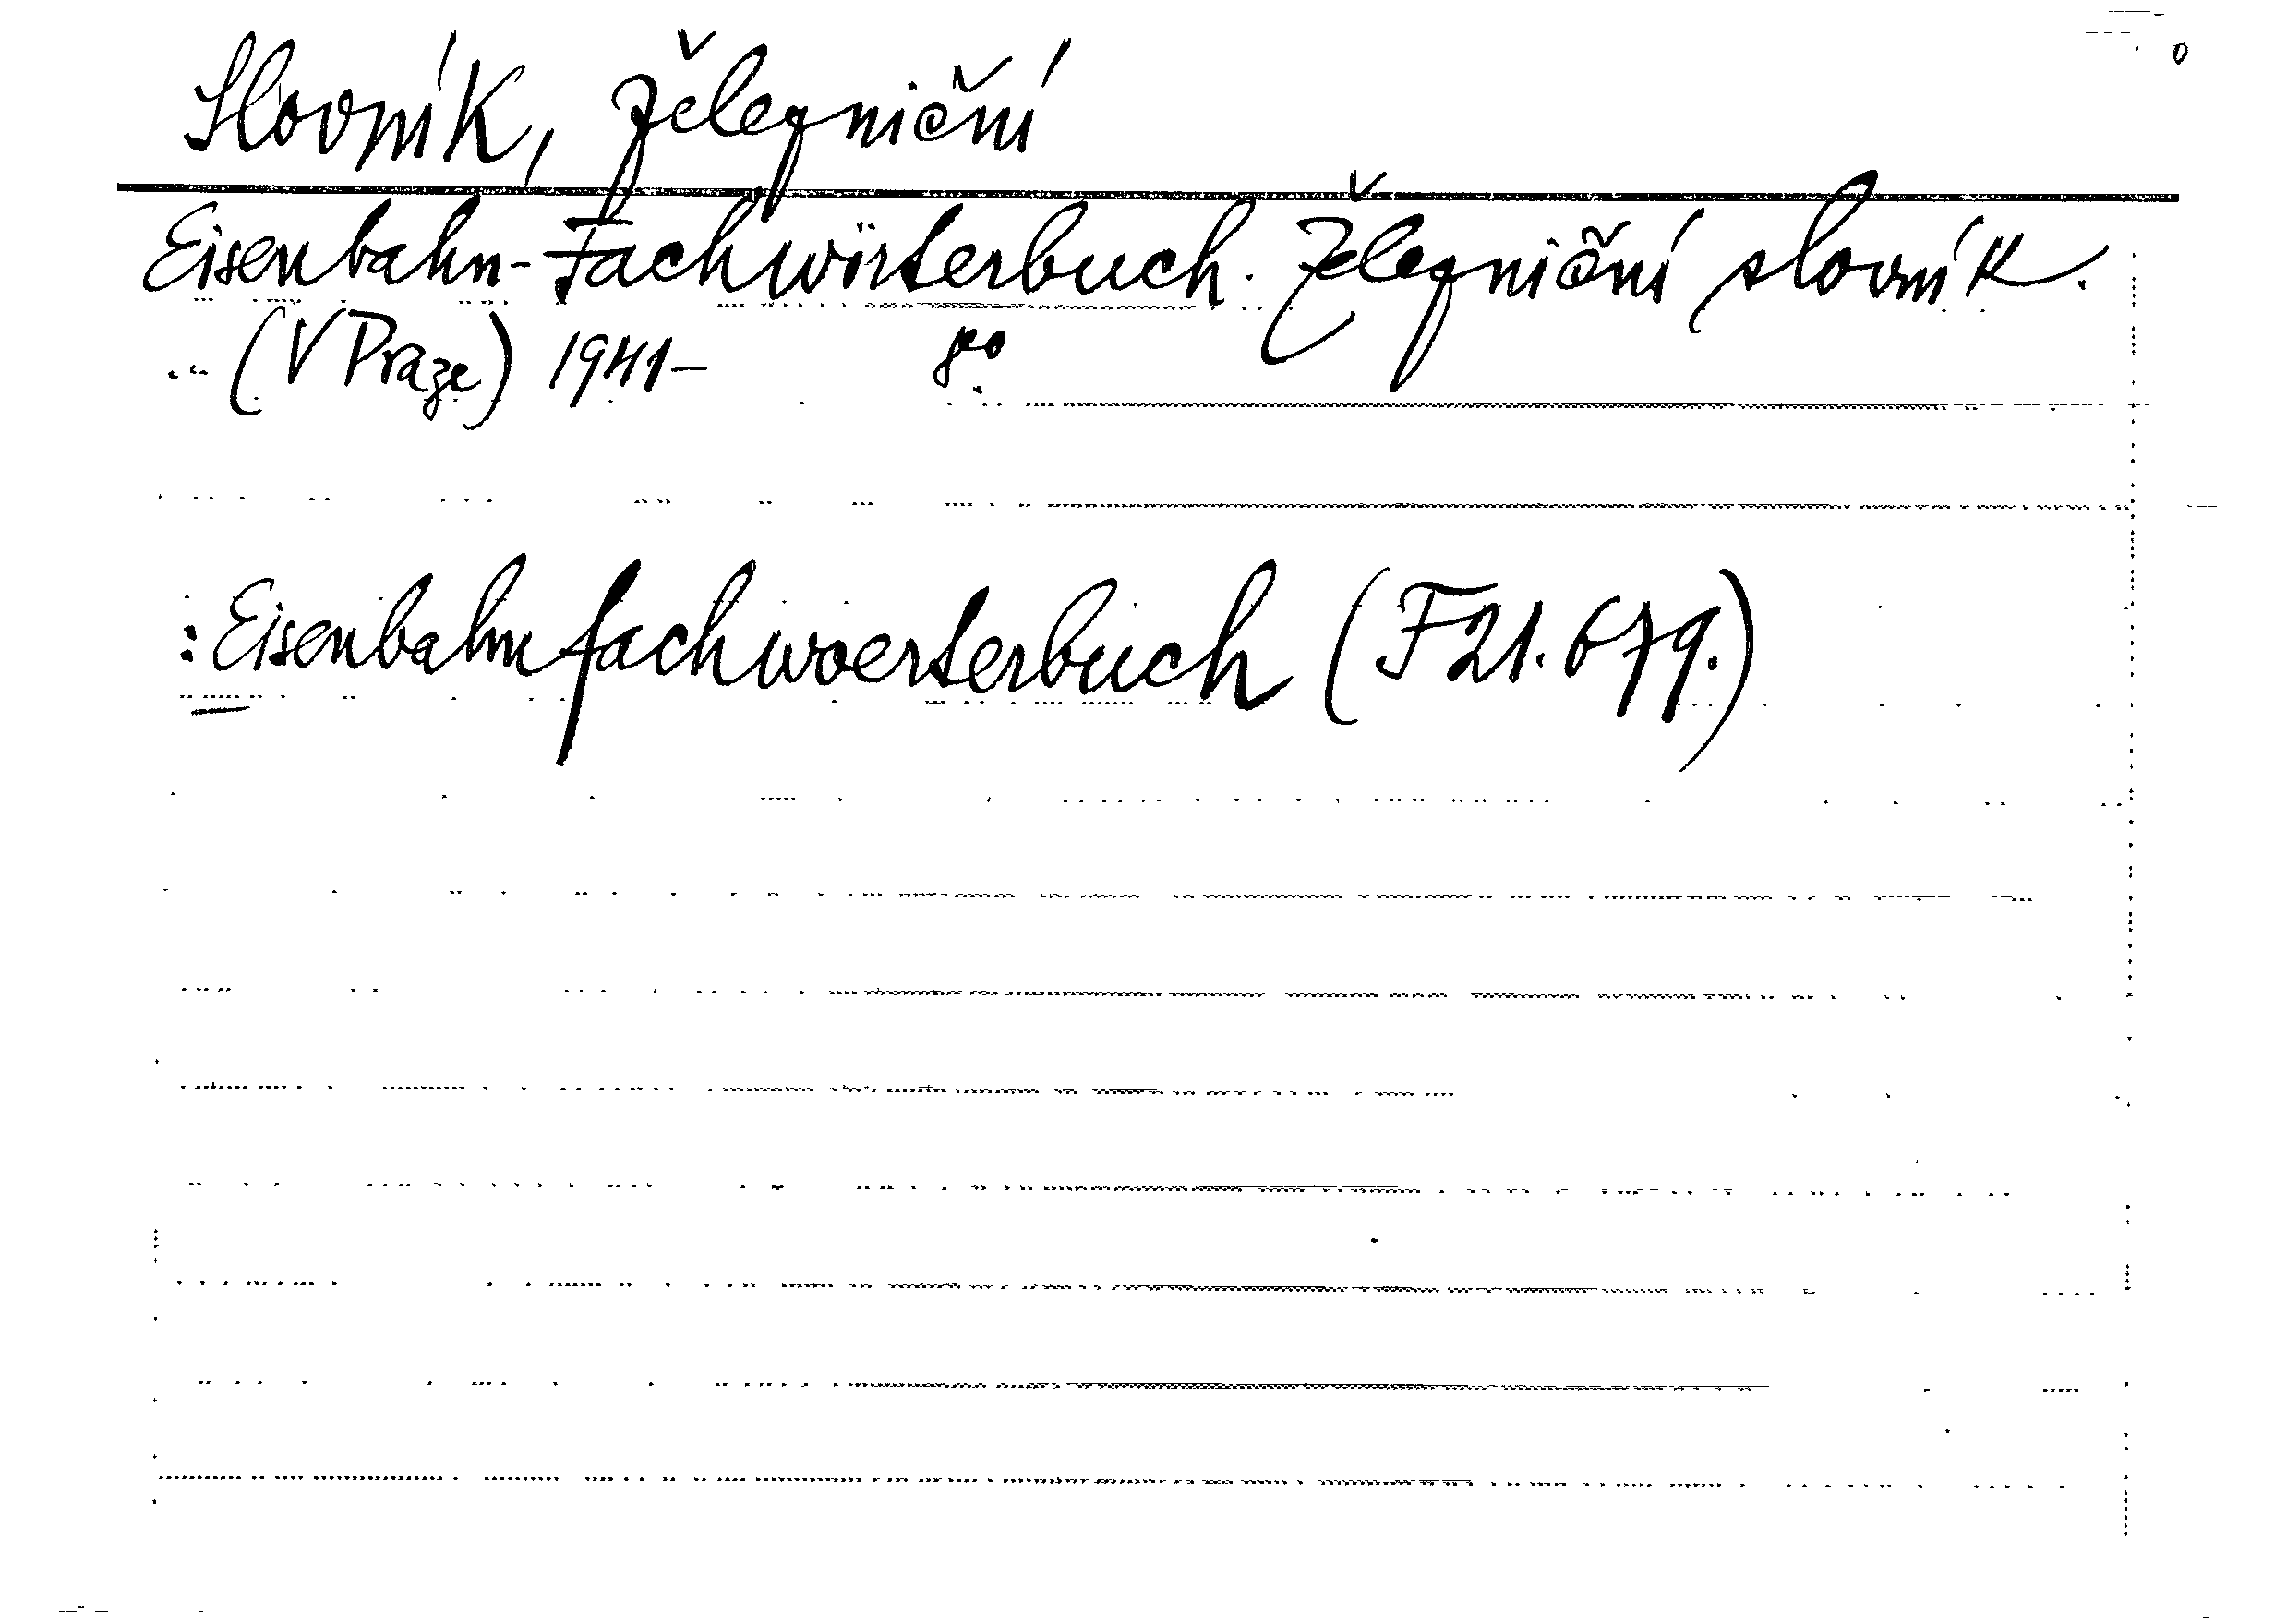 Slovník, železniční
Eisenbahn-Fachwörterbuch. Železniční slovník.
(V Praze) 1941- 8°
: Eisenbahnfachwoerterbuch (F21.679.)